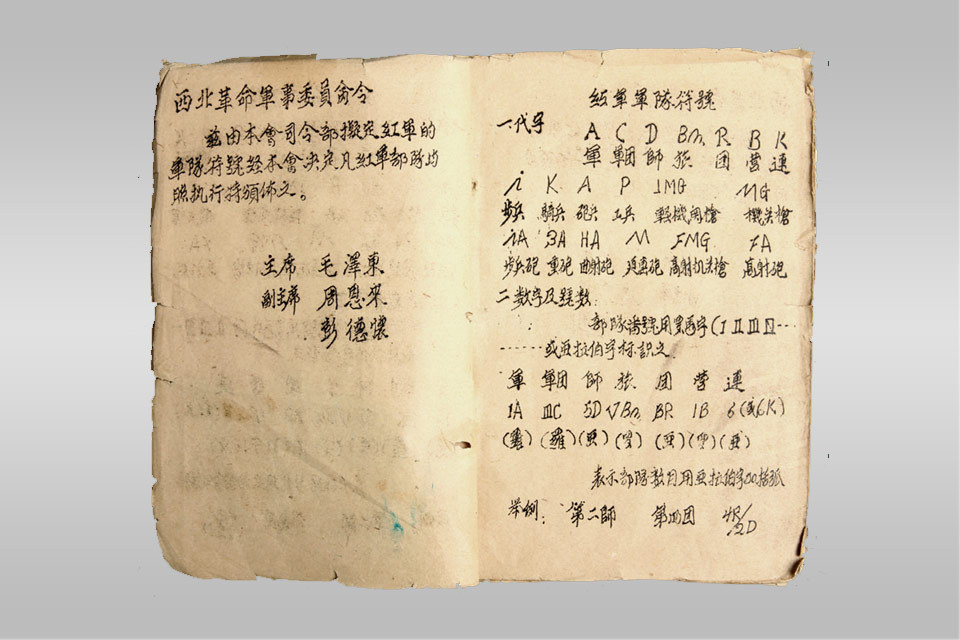 西北革命軍事委員會令
茲由本會司令部擬定紅軍的
軍隊符號经本會决定凡紅軍部隊均
照执行特頒佈之。
主席 毛澤東
副主席 周恩來
彭德懷
紅軍軍隊符號
一.代字
A C D Bm. R. B K
軍 軍团 師 旅 团 營 連
i K. A P 1MG MG
步兵 騎兵 砲兵 工兵 軽機関槍 機关槍
iA BA HA M FMG FA
步兵砲 重砲 曲射砲 迫击砲 高射机关槍 高射砲
二 数字及號数:
部隊番號用羅馬字(I II III IV----
------或亚拉伯字标識之
軍 軍团 師 旅 团 營 連
1A IIIC 5D VBm BR 1B 6(或6K)
(羅) (羅) (亜) (罗) (亜) (罗) (亜)
表示部隊数目用亜拉伯字加括弧
举例: 第二師 第四团 4R/
2D